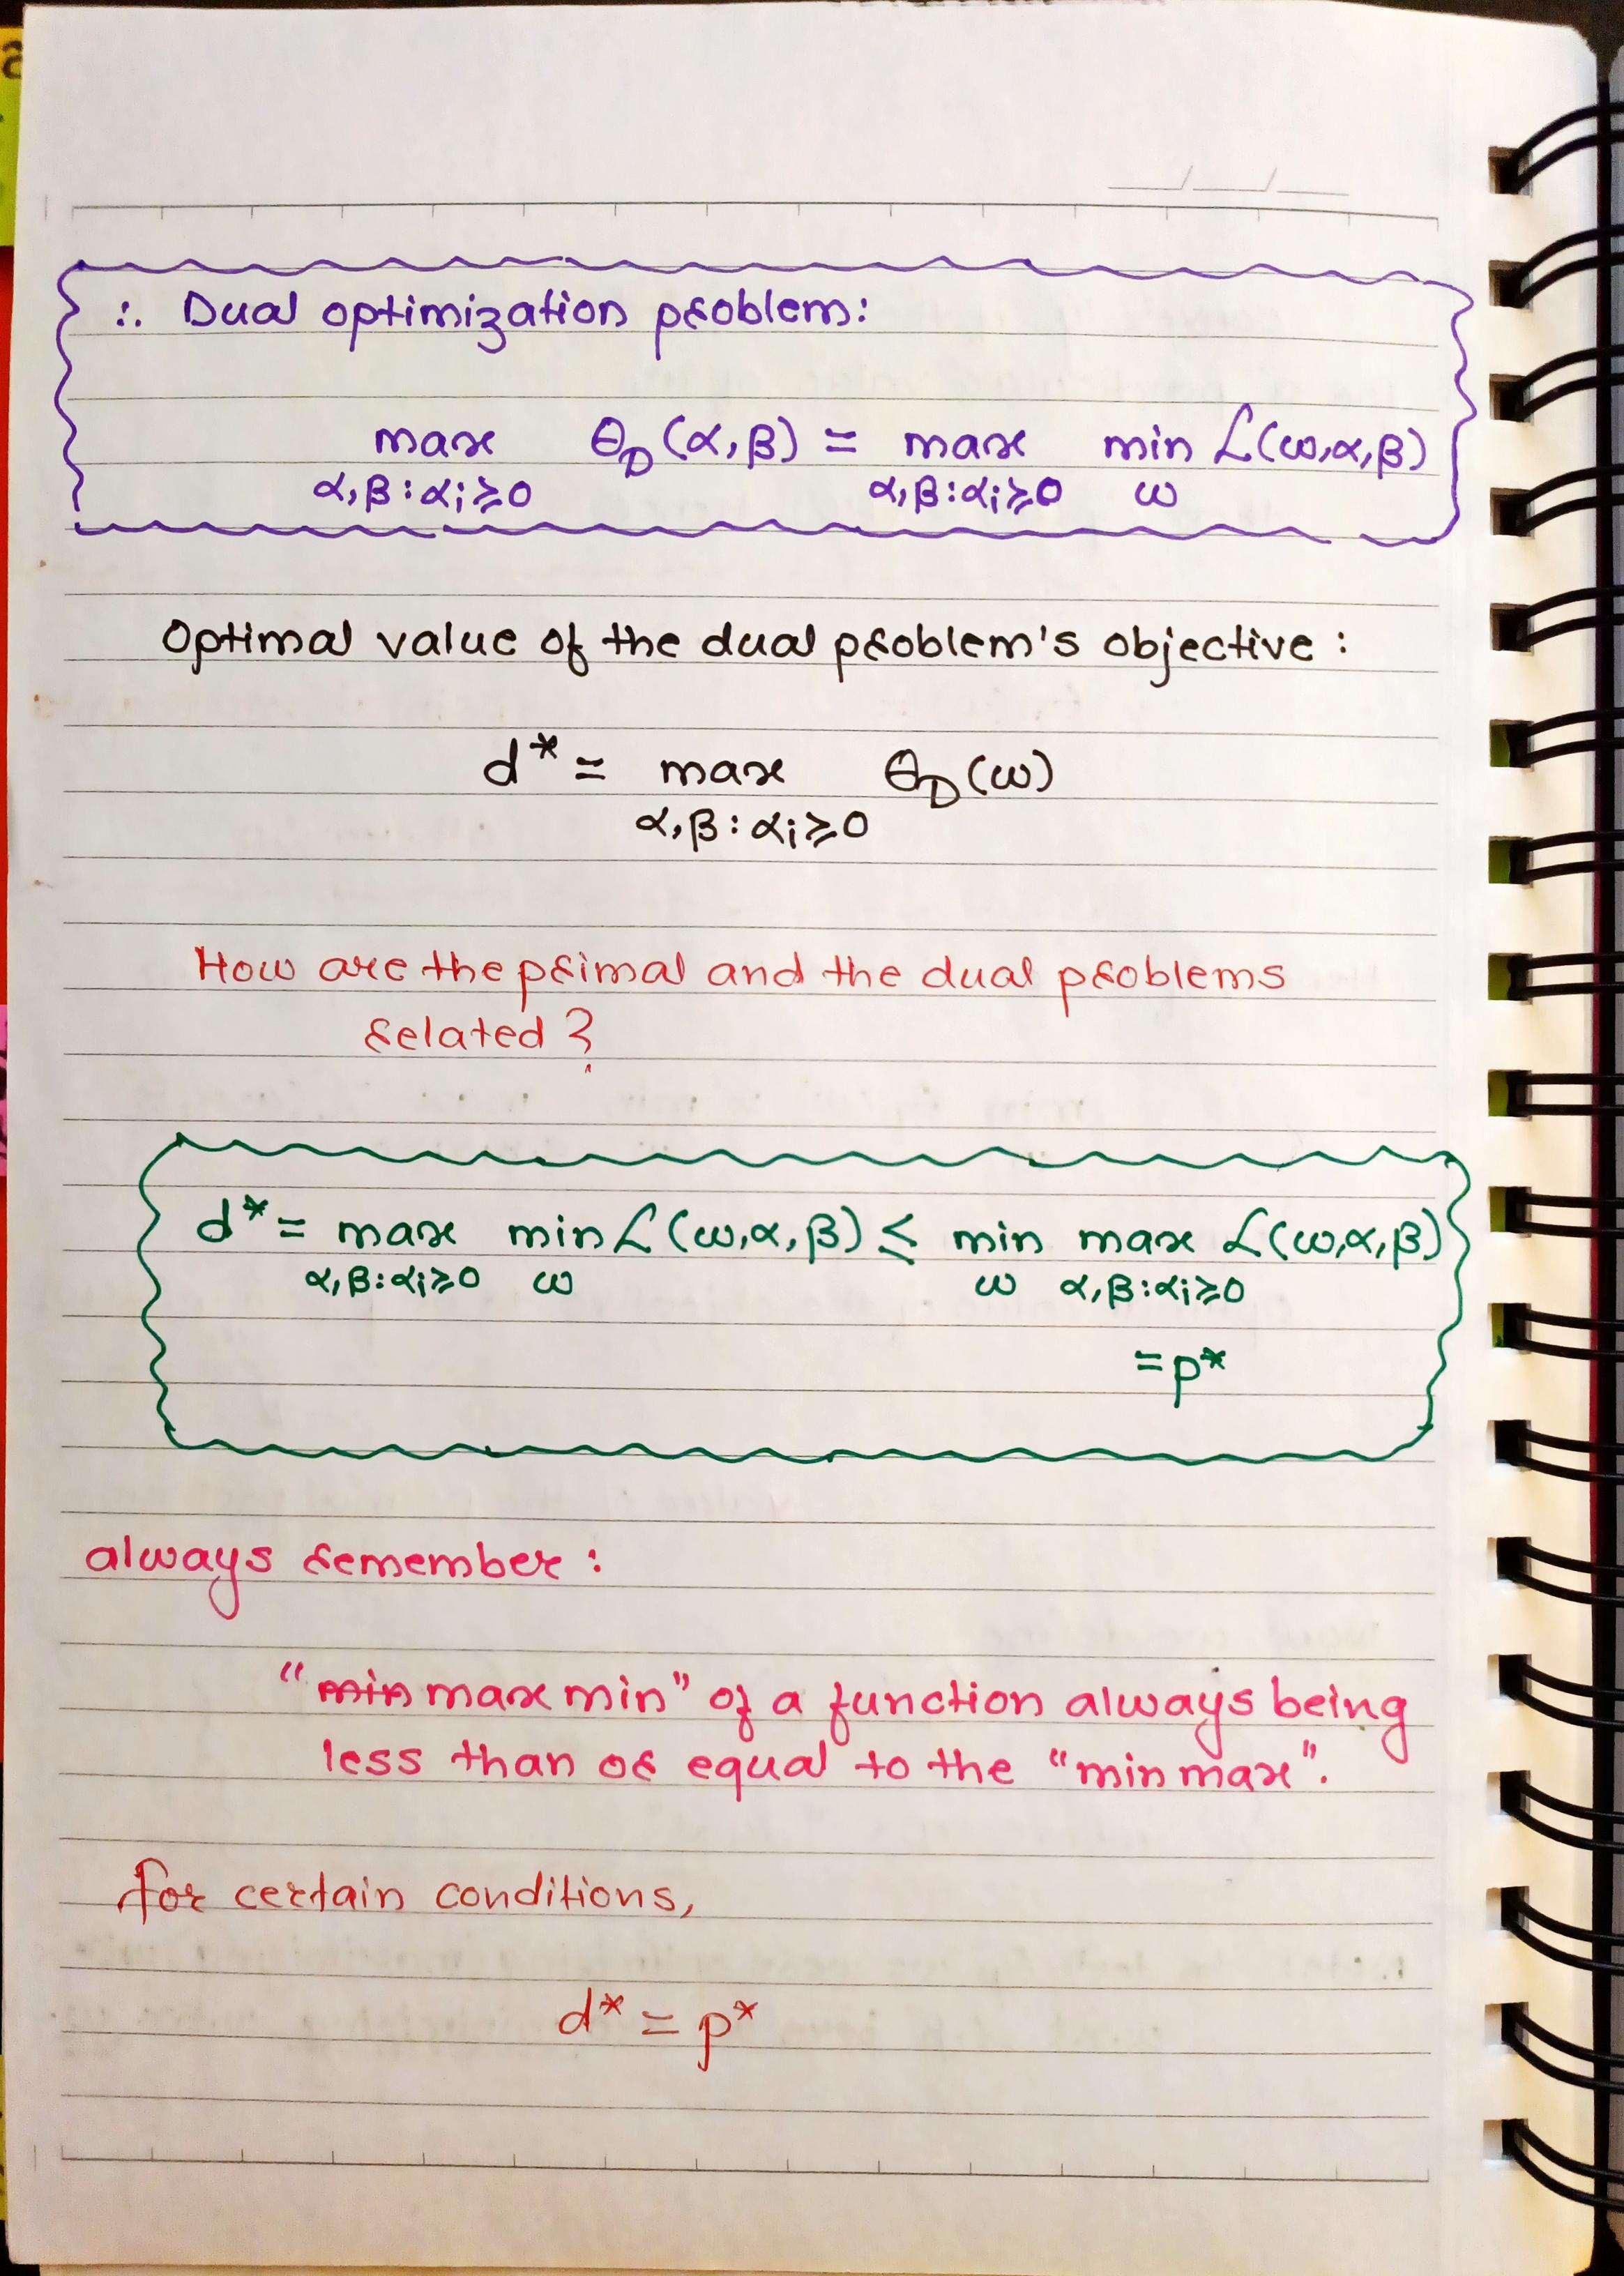 ∴ Dual optimization problem:
max θ_D(α,β) = max min ℒ(ω,α,β)
α,β:αᵢ≥0 α,β:αᵢ≥0 ω
Optimal value of the dual problem's objective :
d* = max θ_D(ω)
α,β:αᵢ≥0
How are the primal and the dual problems
related ?
d* = max min ℒ(ω,α,β) ≤ min max ℒ(ω,α,β)
α,β:αᵢ≥0 ω ω α,β:αᵢ≥0
= p*
always remember :
"min max min" of a function always being
less than or equal to the "min max".
for certain conditions,
d* = p*